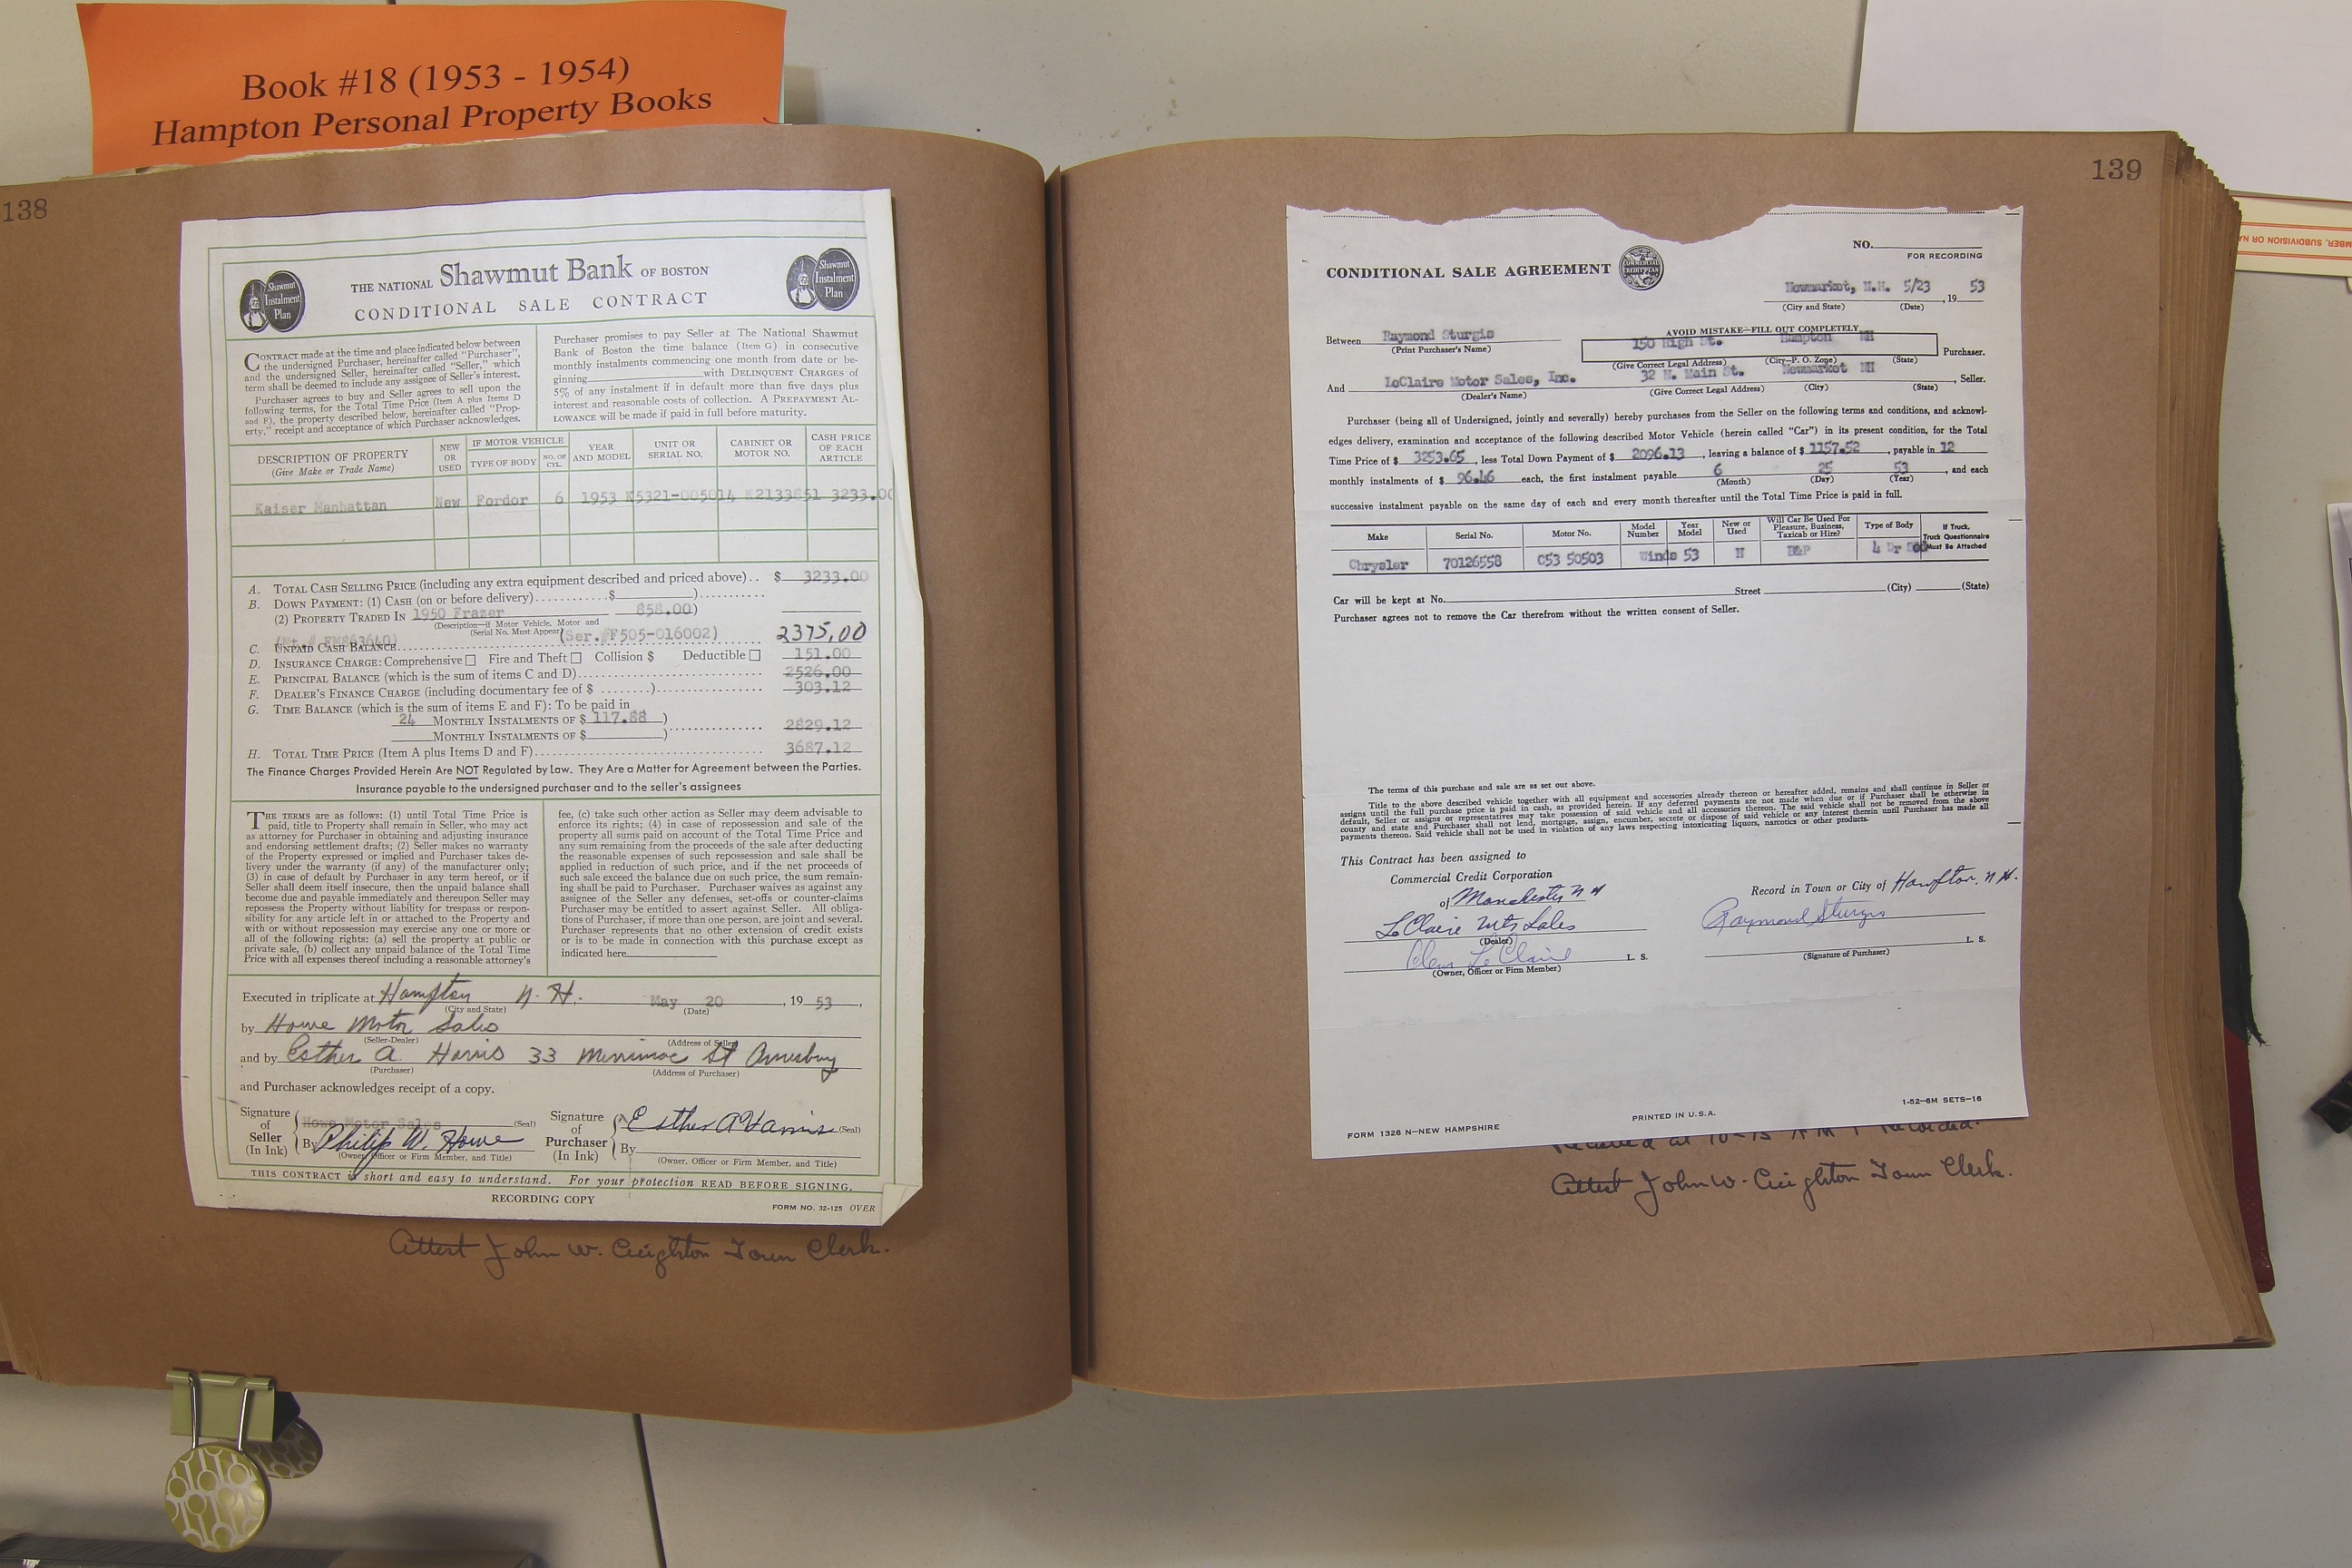 Book #18 (1953 - 1954)
Hampton Personal Property Books
138
Shawmut
Instalment
Plan
THE NATIONAL Shawmut Bank OF BOSTON
CONDITIONAL SALE CONTRACT
Shawmut
Instalment
Plan
CONTRACT made at the time and place indicated below between
the undersigned Purchaser, hereinafter called "Purchaser",
and the undersigned Seller, hereinafter called "Seller," which
term shall be deemed to include any assignee of Seller's interest.
Purchaser agrees to buy and Seller agrees to sell upon the
following terms, for the Total Time Price (Item A plus Items D
and F), the property described below, hereinafter called "Prop-
erty," receipt and acceptance of which Purchaser acknowledges.
Purchaser promises to pay Seller at The National Shawmut
Bank of Boston the time balance (Item G) in consecutive
monthly instalments commencing one month from date or be-
ginning with DELINQUENT CHARGES of
5% of any instalment if in default more than five days plus
interest and reasonable costs of collection. A PREPAYMENT AL-
LOWANCE will be made if paid in full before maturity.
DESCRIPTION OF PROPERTY (Give Make or Trade Name)
NEW OR USED
IF MOTOR VEHICLE
TYPE OF BODY
NO. OF CYL.
YEAR AND MODEL
UNIT OR SERIAL NO.
CABINET OR MOTOR NO.
CASH PRICE OF EACH ARTICLE
Kaiser Manhattan New Fordor 6 1953 K5321-005014 K2133851 3233.00
A. TOTAL CASH SELLING PRICE (including any extra equipment described and priced above).. $ 3233.00
B. DOWN PAYMENT: (1) CASH (on or before delivery)...........$ )..........
(2) PROPERTY TRADED IN 1950 Frazer 858.00)
(Description—if Motor Vehicle, Motor and
Serial No. Must Appear) (Ser.#F505-016002)
C. UNPAID CASH BALANCE 2375,00
D. INSURANCE CHARGE: Comprehensive Fire and Theft Collision $ Deductible 151.00
E. PRINCIPAL BALANCE (which is the sum of items C and D) 2526.00
F. DEALER'S FINANCE CHARGE (including documentary fee of $ ........) 303.12
G. TIME BALANCE (which is the sum of items E and F): To be paid in
24 MONTHLY INSTALMENTS OF $ 117.88 )
MONTHLY INSTALMENTS OF $ ) 2829.12
H. TOTAL TIME PRICE (Item A plus Items D and F) 3687.12
The Finance Charges Provided Herein Are NOT Regulated by Law. They Are a Matter for Agreement between the Parties.
Insurance payable to the undersigned purchaser and to the seller's assignees
THE TERMS are as follows: (1) until Total Time Price is
paid, title to Property shall remain in Seller, who may act
as attorney for Purchaser in obtaining and adjusting insurance
and endorsing settlement drafts; (2) Seller makes no warranty
of the Property expressed or implied and Purchaser takes de-
livery under the warranty (if any) of the manufacturer only;
(3) in case of default by Purchaser in any term hereof, or if
Seller shall deem itself insecure, then the unpaid balance shall
become due and payable immediately and thereupon Seller may
repossess the Property without liability for trespass or respon-
sibility for any article left in or attached to the Property and
with or without repossession may exercise any one or more or
all of the following rights: (a) sell the property at public or
private sale, (b) collect any unpaid balance of the Total Time
Price with all expenses thereof including a reasonable attorney's
fee, (c) take such other action as Seller may deem advisable to
enforce its rights; (4) in case of repossession and sale of the
property all sums paid on account of the Total Time Price and
any sum remaining from the proceeds of the sale after deducting
the reasonable expenses of such repossession and sale shall be
applied in reduction of such price, and if the net proceeds of
such sale exceed the balance due on such price, the sum remain-
ing shall be paid to Purchaser. Purchaser waives as against any
assignee of the Seller any defenses, set-offs or counter-claims
Purchaser may be entitled to assert against Seller. All obliga-
tions of Purchaser, if more than one person, are joint and several.
Purchaser represents that no other extension of credit exists
or is to be made in connection with this purchase except as
indicated here
Executed in triplicate at Hampton N. H. May 20, 1953,
(City and State) (Date)
by Howe Motor Sales
(Seller-Dealer) (Address of Seller)
and by Esther A. Harris 33 Merrimac St Amesbury
(Purchaser) (Address of Purchaser)
and Purchaser acknowledges receipt of a copy.
Signature of Seller (In Ink)
Howe Motor Sales (Seal)
By Philip W. Howe
(Owner, Officer or Firm Member, and Title)
Signature of Purchaser (In Ink)
Esther A Harris (Seal)
By
(Owner, Officer or Firm Member, and Title)
THIS CONTRACT is short and easy to understand. For your protection READ BEFORE SIGNING.
RECORDING COPY
FORM NO. 32-125 OVER
Attest John W. Creighton Town Clerk.
139
NO.
FOR RECORDING
CONDITIONAL SALE AGREEMENT
COMMERCIAL CREDIT PLAN
Newmarket, N.H. 5/23, 19 53
(City and State) (Date)
AVOID MISTAKE—FILL OUT COMPLETELY
Between Raymond Sturgis 150 High St. Hampton NH Purchaser.
(Print Purchaser's Name) (Give Correct Legal Address) (City—P. O. Zone) (State)
And LeClaire Motor Sales, Inc. 32 N. Main St. Newmarket NH, Seller.
(Dealer's Name) (Give Correct Legal Address) (City) (State)
Purchaser (being all of Undersigned, jointly and severally) hereby purchases from the Seller on the following terms and conditions, and acknowl-
edges delivery, examination and acceptance of the following described Motor Vehicle (herein called "Car") in its present condition, for the Total
Time Price of $ 3253.65, less Total Down Payment of $ 2096.13, leaving a balance of $ 1157.52, payable in 12
monthly instalments of $ 96.46 each, the first instalment payable 6 25 53, and each
(Month) (Day) (Year)
successive instalment payable on the same day of each and every month thereafter until the Total Time Price is paid in full.
Make
Serial No.
Motor No.
Model Number
Year Model
New or Used
Will Car Be Used For Pleasure, Business, Taxicab or Hire?
Type of Body
If Truck, Truck Questionnaire Must Be Attached
Chrysler 70126558 C53 50503 Winds 53 N B&P 4 Dr Sed
Car will be kept at No. Street (City) (State)
Purchaser agrees not to remove the Car therefrom without the written consent of Seller.
The terms of this purchase and sale are as set out above.
Title to the above described vehicle together with all equipment and accessories already thereon or hereafter added, remains and shall continue in Seller or
assigns until the full purchase price is paid in cash, as provided herein. If any deferred payments are not made when due or if Purchaser shall be otherwise in
default, Seller or assigns or representatives may take possession of said vehicle and all accessories thereon. The said vehicle shall not be removed from the above
county and state and Purchaser shall not lend, mortgage, assign, encumber, secrete or dispose of said vehicle or any interest therein until Purchaser has made all
payments thereon. Said vehicle shall not be used in violation of any laws respecting intoxicating liquors, narcotics or other products.
This Contract has been assigned to
Commercial Credit Corporation
of Manchester N H
Record in Town or City of Hampton, N.H.
LeClaire Mtr Sales
(Dealer)
LeClaire L. S.
(Owner, Officer or Firm Member)
Raymond Sturgis
L. S.
(Signature of Purchaser)
FORM 1326 N—NEW HAMPSHIRE
PRINTED IN U.S.A.
1-52—6M SETS—16
Attest John W. Creighton Town Clerk.